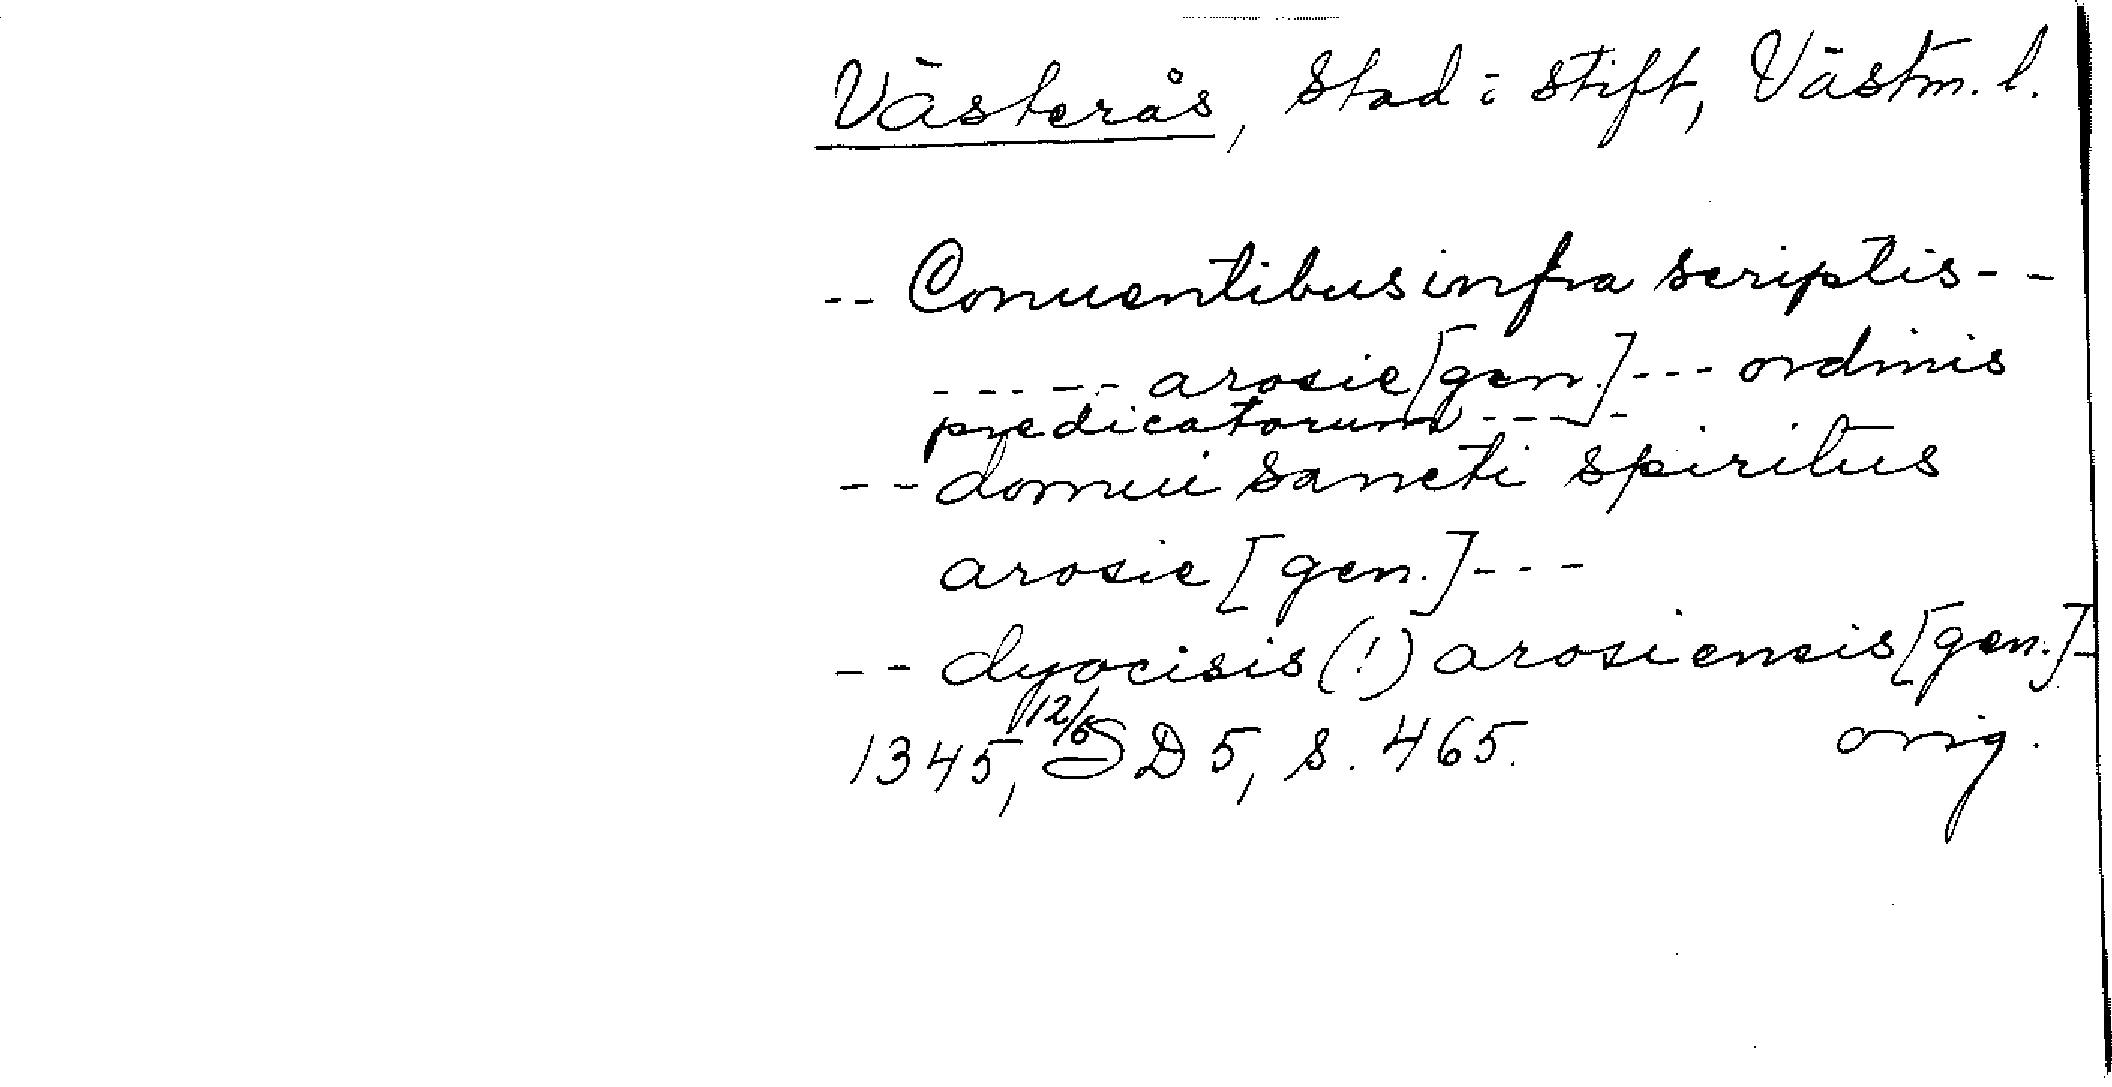 Västerås, Stad i stift, Västm. l.
-- Conuentibus infra scriptis --
----- arosie [gen.] --- ordinis
predicatorum ----
-- domui sancti spiritus
arosie [gen.] ---
-- dyocisis (!) arosiensis [gen.] -
1345, 12/6 SD 5, s. 465. orig.